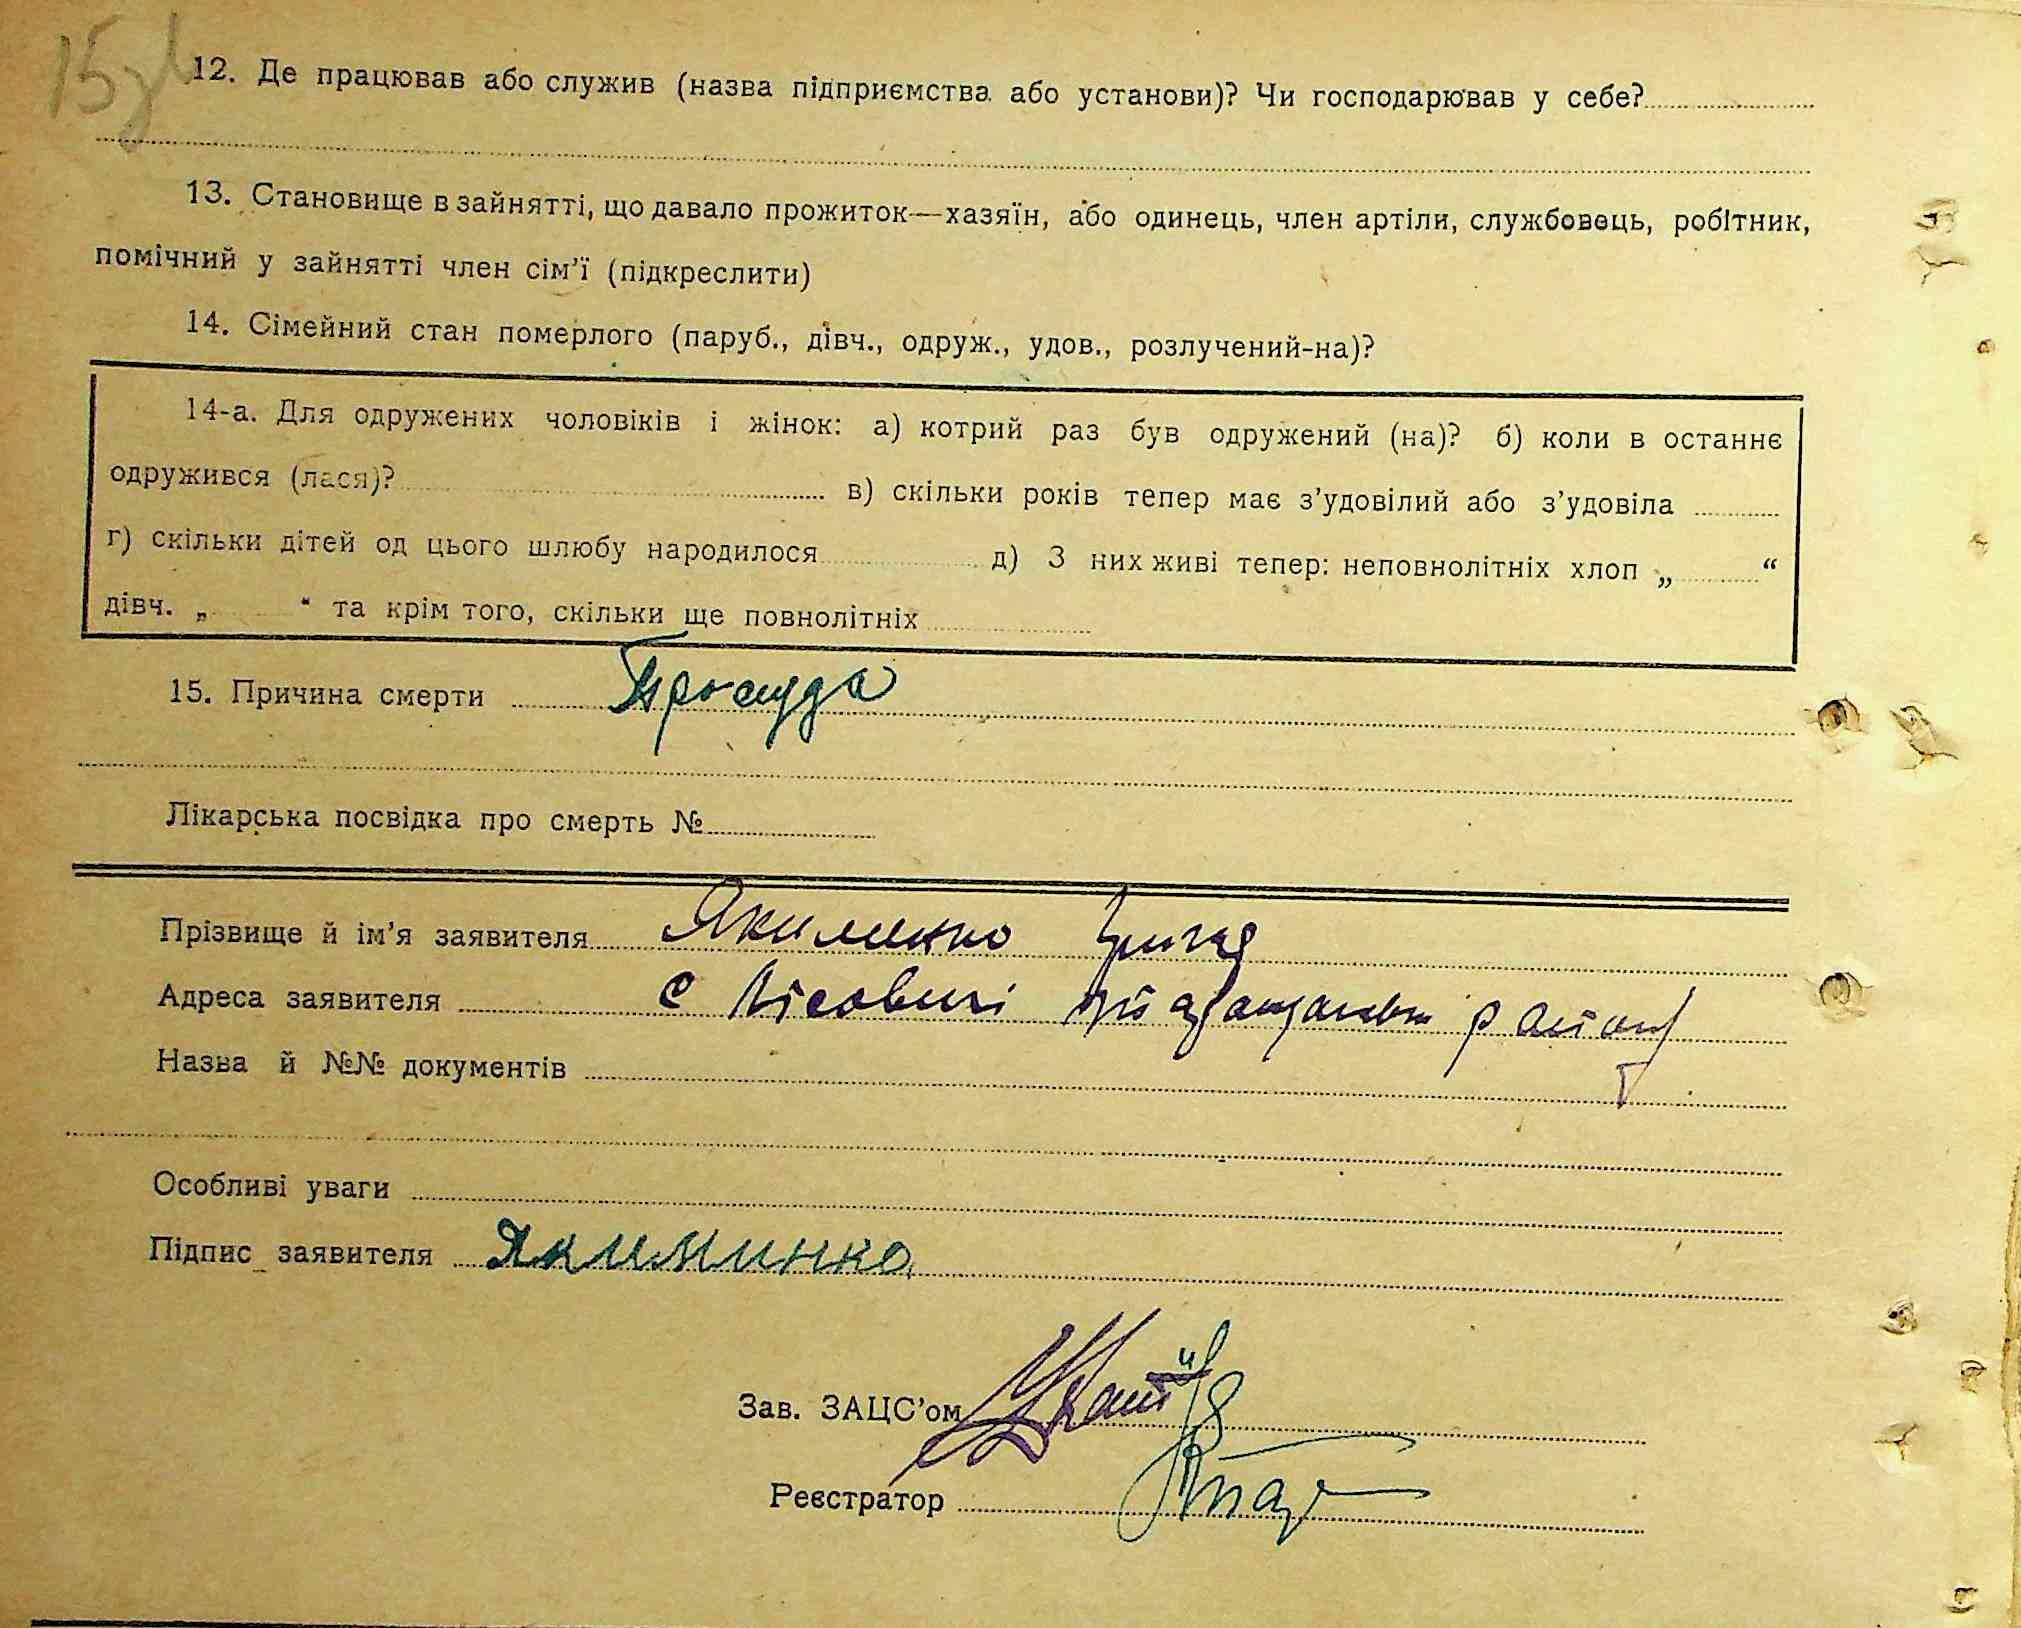 15
12. Де працював або служив (назва підприємства або установи)? Чи господарював у себе?
13. Становище в зайнятті, що давало прожиток—хазяїн, або одинець, член артіли, службовець, робітник,
помічний у зайнятті член сім'ї (підкреслити)
14. Сімейний стан померлого (паруб., дівч., одруж., удов., розлучений-на)?
14-а. Для одружених чоловіків і жінок: а) котрий раз був одружений (на)? б) коли в останнє
одружився (лася)? в) скільки років тепер має з'удовілий або з'удовіла
г) скільки дітей од цього шлюбу народилося д) З них живі тепер: неповнолітніх хлоп „ “
дівч. „ “ та крім того, скільки ще повнолітніх
15. Причина смерти Просуда
Лікарська посвідка про смерть №
Прізвище й ім'я заявителя Якименко
Адреса заявителя с Лісовичі району
Назва й №№ документів
Особливі уваги
Підпис заявителя Якиминко
Зав. ЗАЦС'ом
Реєстратор